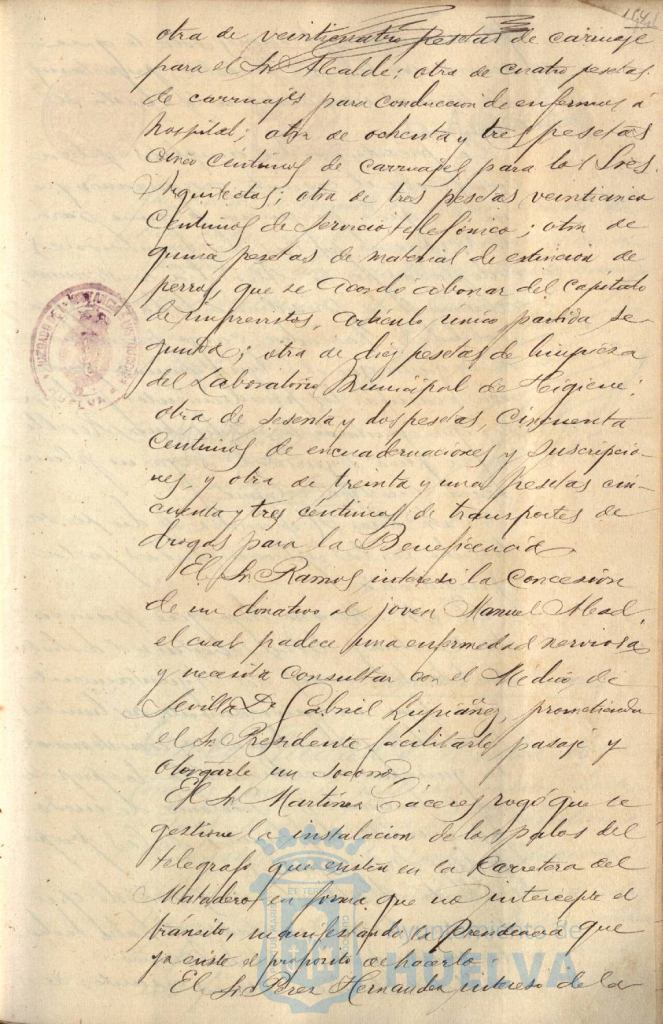 otra de veinticuatro pesetas de carruaje
para el Sr. Alcalde; otra de cuatro pesetas
de carruajes para conducción de enfermos á
hospital; otra de ochenta y tres pesetas
cinco centimos de carruajes para los Sres.
Arquitectos; otra de tres pesetas veinticinco
centimos de servicio telefónico; otra de
quince pesetas de material de extincion de
perros, que se acordó abonar del Capitulo
de imprevistos, articulo unico partida se
gunda; otra de diez pesetas de limpieza
del Laboratorio Municipal de Higiene;
otra de sesenta y dos pesetas, cincuenta
centimos de encuadernaciones y suscripcio-
nes, y otra de treinta y una pesetas cin-
cuenta y tres céntimos de transportes de
drogas para la Beneficencia.
El Sr. Ramos interesó la concesión
de un donativo al joven Manuel Abad,
el cual padece una enfermedad nerviosa
y necesita consultar con el Medico de
Sevilla Dn. Gabriel Lupiáñez, prometiendo
el Sr. Presidente facilitarle pasaje y
otorgarle un socorro.
El Sr. Martinez Cáceres rogó que se
gestione la instalacion de los palos del
telegrafo que existen en la Carretera del
Matadero en forma que no intercepte el
tránsito, manifestando la Presidencia que
ya existe el proposito de hacerlo.
El Sr. Perez Hernandez intereso de la
HUELVA
Ayuntamiento de
HUELVA